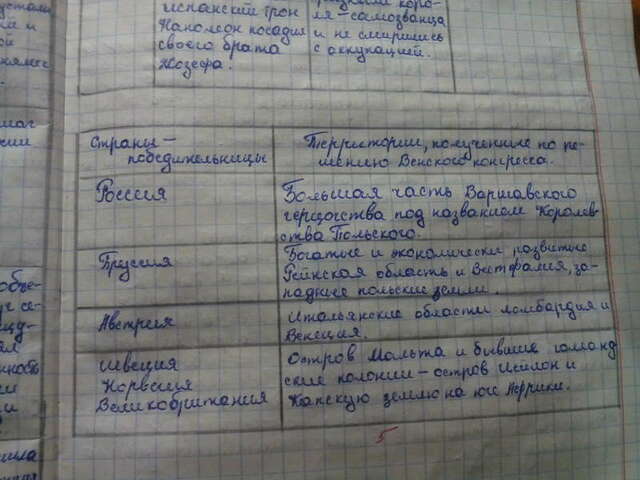 испанский трон
Наполеон посадил
своего брата
Жозефа.
ля – самозванца
и не смирились
с оккупацией.
Страны –
победительницы
Территории, полученные по ре-
шению Венского конгресса.
Россия
Большая часть Варшавского
герцогства под названием Королев-
ства Польского.
Пруссия
Богатые и экономически развитые
Рейнская область и Вестфалия, за-
падные польские земли.
Австрия
Итальянские области Ломбардия и
Венеция.
Швеция
Норвегия
Великобритания
Остров Мальта и бывшие голланд
ские колонии – остров Цейлон и
Капскую землю на юге Африки.
5